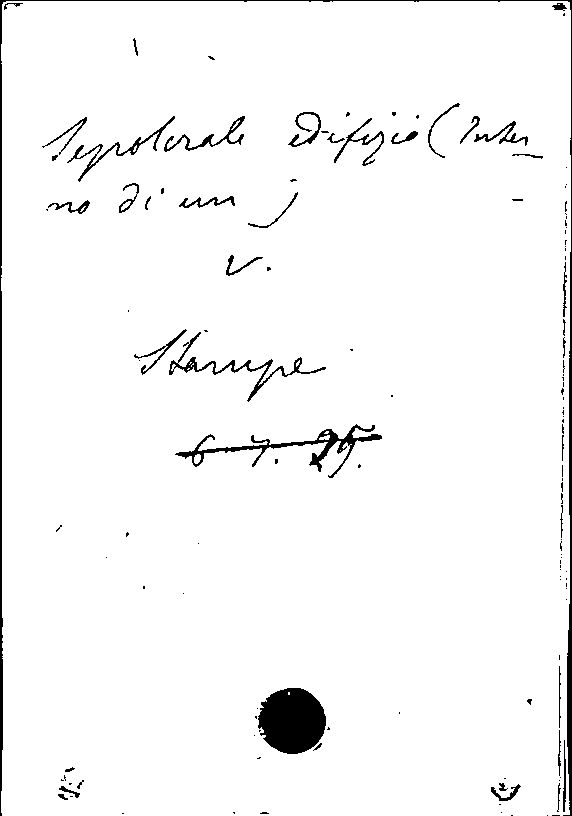 Sepolcrale edifizio (Inter-
no di un )
v.
Stampe
6. 7. 25.